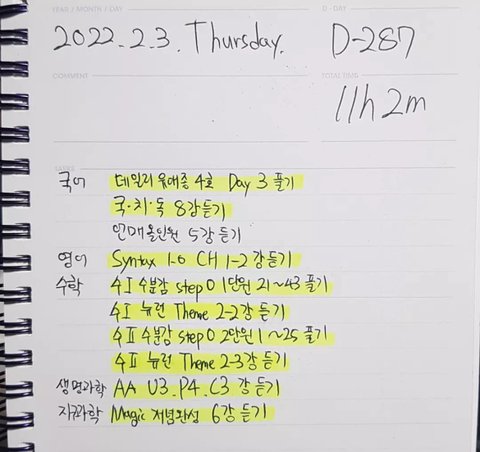 YEAR / MONTH / DAY
D - DAY
2022.2.3. Thursday.
D-287
COMMENT
TOTAL TIME
11h 2m
TASKS
국어 데일리 유대종 4호 Day 3 풀기
국·치·독 8강 듣기
언매올인원 5강 듣기
영어 Syntax 1.0 CH 1-2 강 듣기
수학 수I 수분감 step 0 1단원 21~43 풀기
수I 뉴런 Theme 2-2강 듣기
수II 수분감 step 0 2단원 1~25 풀기
수II 뉴런 Theme 2-3강 듣기
생명과학 AA U3.P4.C3 강 듣기
지구과학 Magic 개념완성 6강 듣기